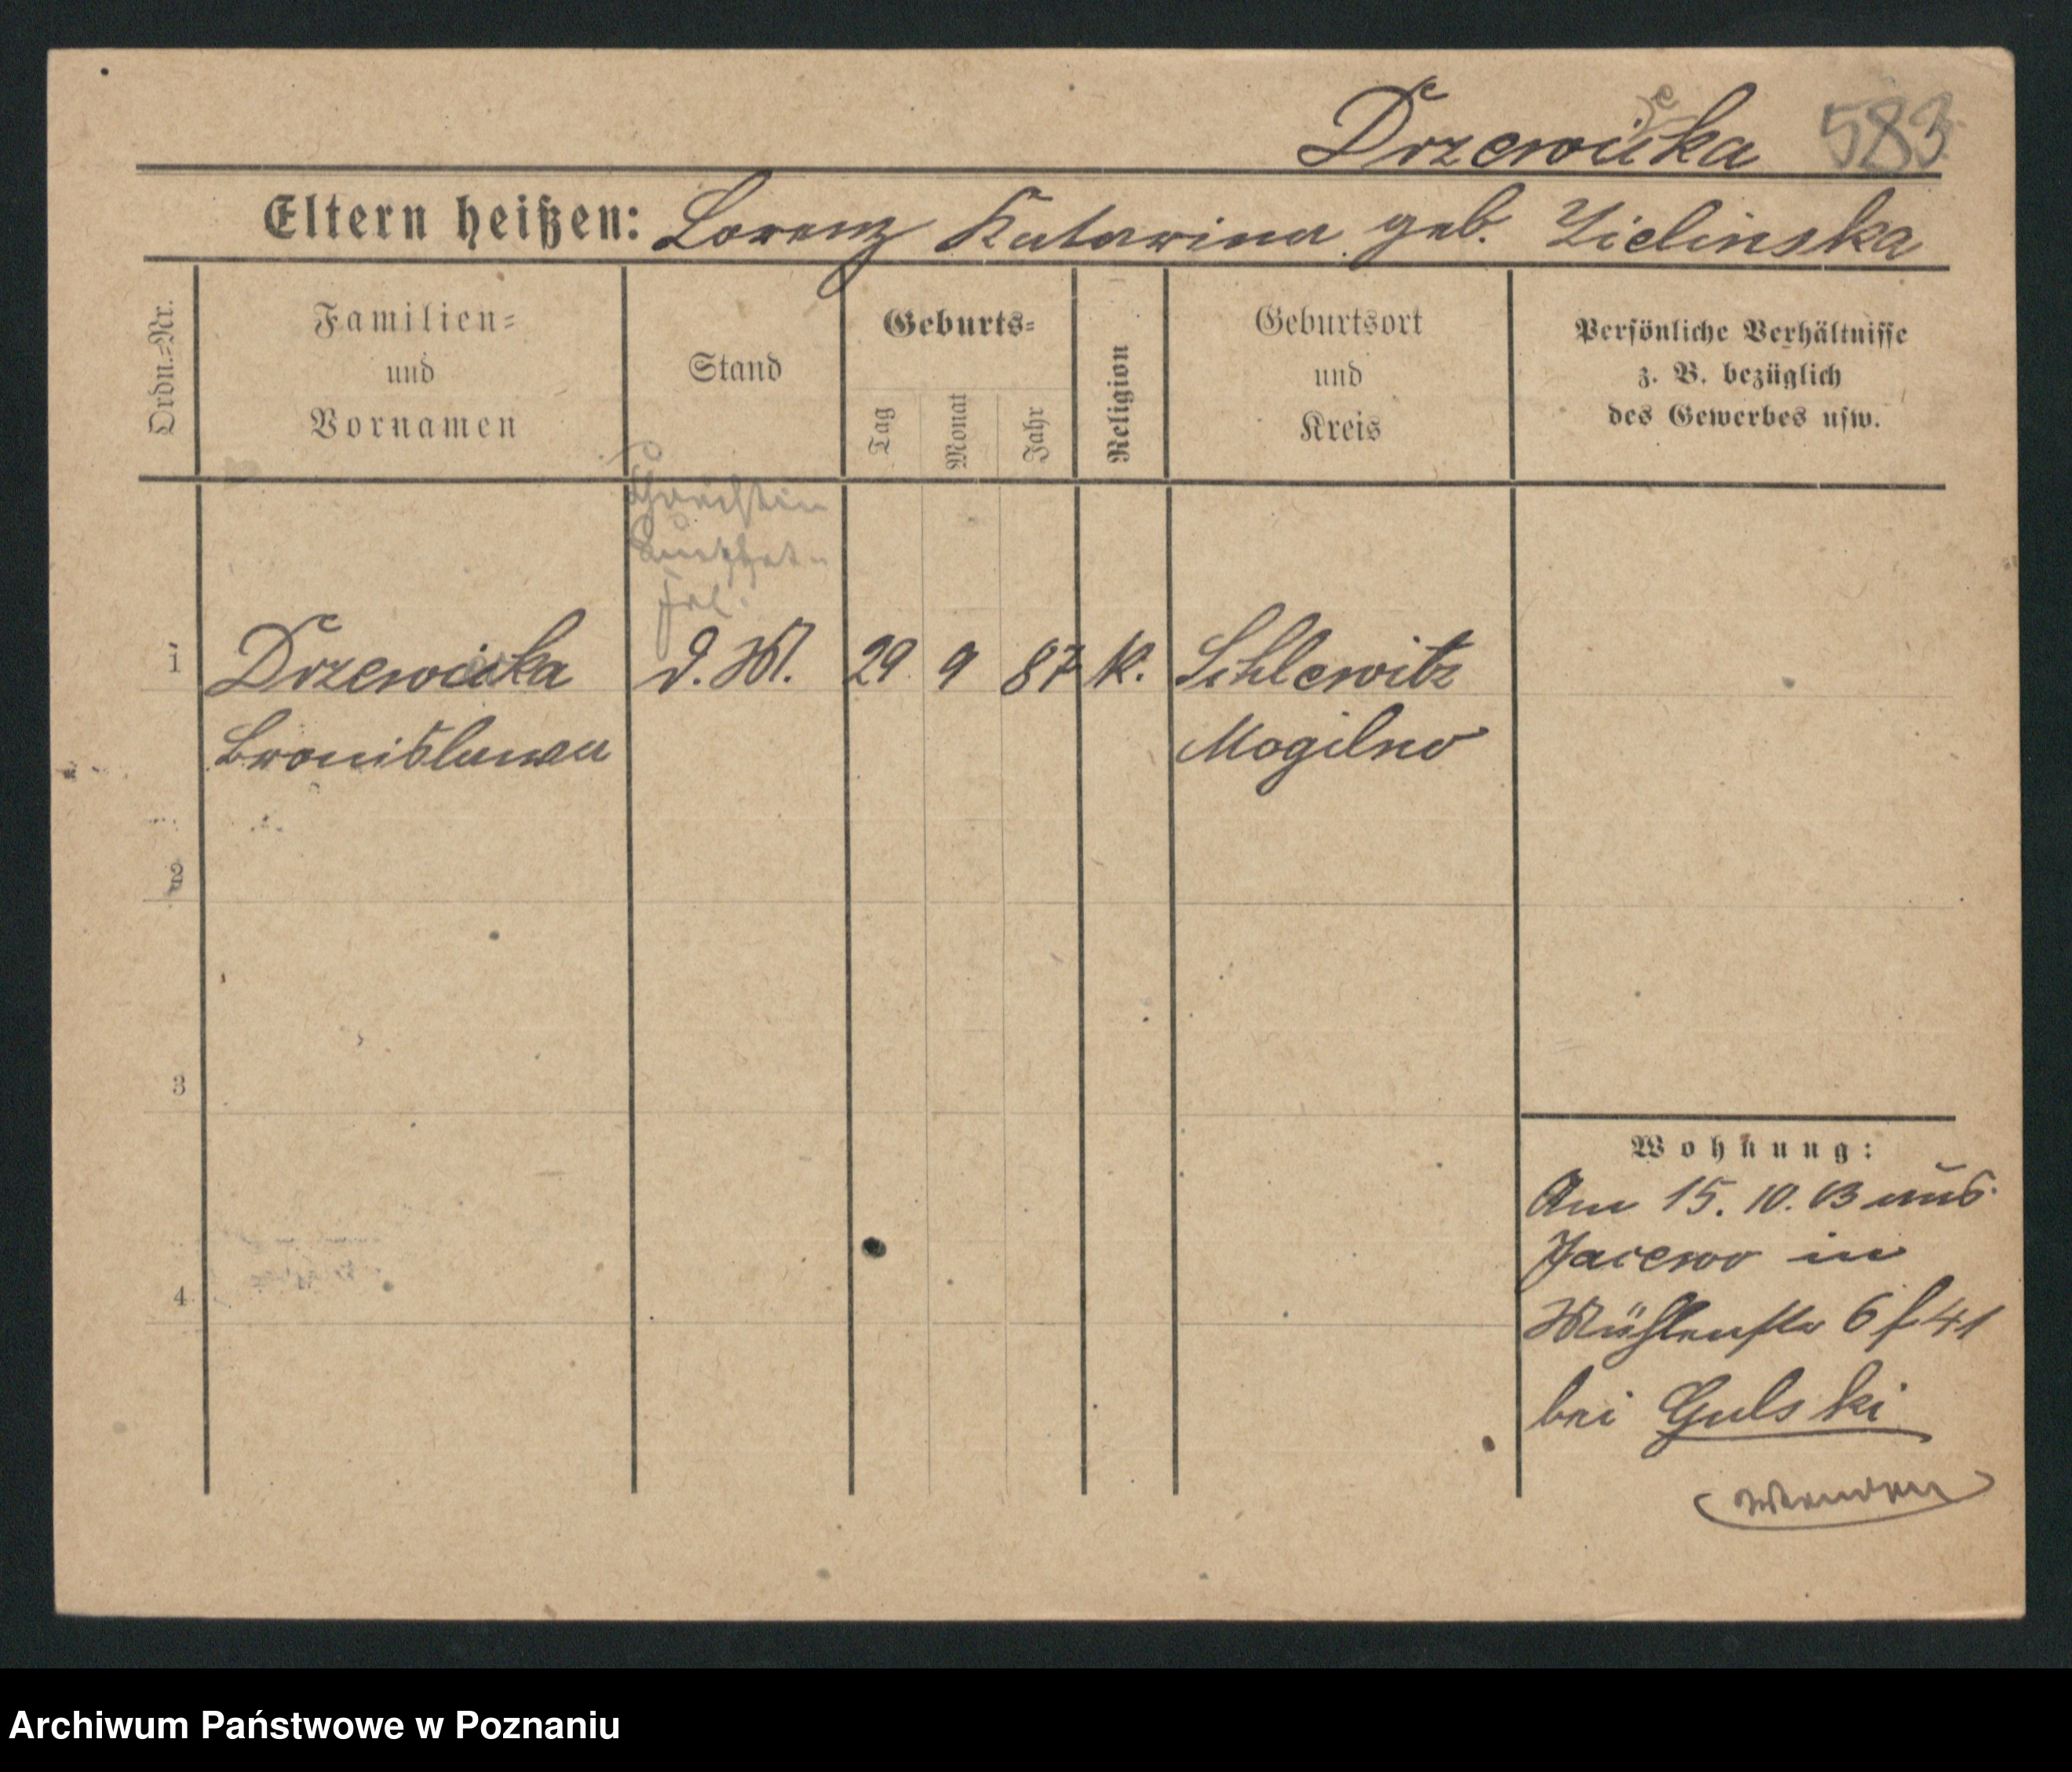 Drzewicka 583
Eltern heißen: Lorenz Katarina geb. Zielinska
Ordn.=Nr.
Familien=
und
Vornamen
Stand
Geburts=
Tag
Monat
Jahr
Religion
Geburtsort
und
Kreis
Persönliche Verhältnisse
z. B. bezüglich
des Gewerbes usw.
frl.
1 Drzewicka d. M. 29 9 87 K. Schlewitz
Bronislawa Mogilno
2
3
4
Wohnung:
Am 15. 10. 03 aus
Jacewo in
Mühlenstr 6 f 41
bei Gulski
Wenden
Archiwum Państwowe w Poznaniu